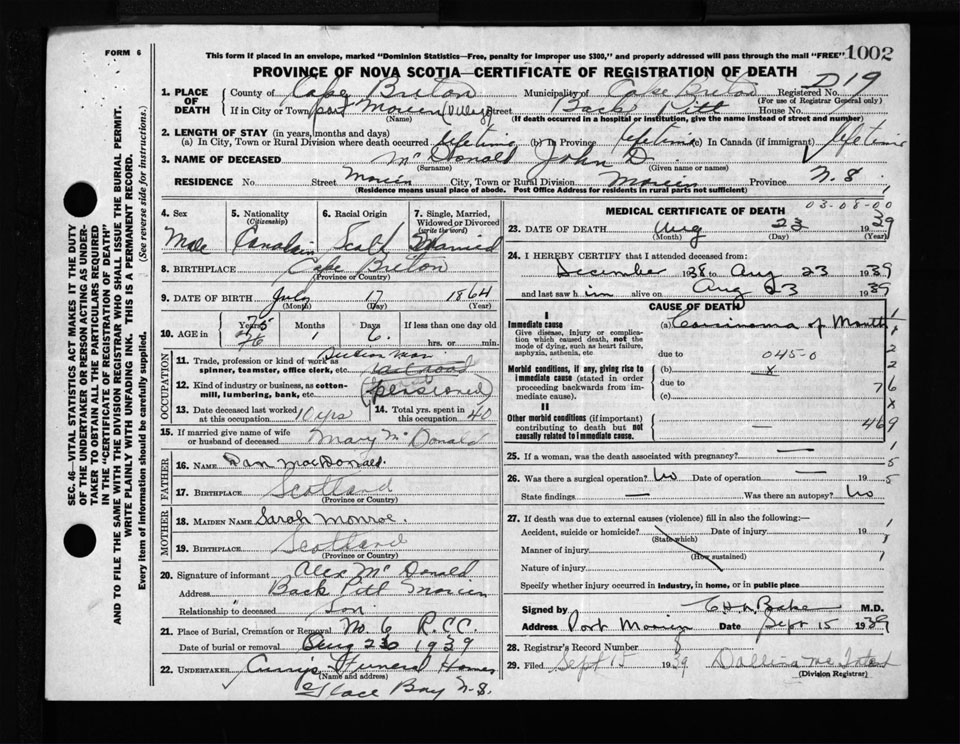 FORM 6
This form if placed in an envelope, marked "Dominion Statistics—Free, penalty for improper use $300," and properly addressed will pass through the mail "FREE" 1002
PROVINCE OF NOVA SCOTIA—CERTIFICATE OF REGISTRATION OF DEATH
1. PLACE OF DEATH
County of Cape Breton Municipality of Cape Breton Registered No. D19
(For use of Registrar General only)
If in City or Town Port Morien (Village) Street Back Pitt House No.
(Name) (If death occurred in a hospital or institution, give the name instead of street and number)
2. LENGTH OF STAY (in years, months and days)
(a) In City, Town or Rural Division where death occurred lifetime (b) In Province lifetime (c) In Canada (if immigrant) lifetime
3. NAME OF DECEASED McDonald John D.
(Surname) (Given name or names)
RESIDENCE No. Street Morien City, Town or Rural Division Morien Province N.S.
(Residence means usual place of abode. Post Office Address for residents in rural parts not sufficient)
4. Sex Male
5. Nationality (Citizenship) Canadain
6. Racial Origin Scotch
7. Single, Married, Widowed or Divorced (write the word) Married
8. BIRTHPLACE Cape Breton
(Province or Country)
9. DATE OF BIRTH July 17 1864
(Month) (Day) (Year)
10. AGE in Years 75 Months 1 Days 6 If less than one day old
hrs. or min.
OCCUPATION
11. Trade, profession or kind of work as spinner, teamster, office clerk, etc. Section Man
12. Kind of industry or business, as cotton-mill, lumbering, bank, etc. (pensioned)
13. Date deceased last worked at this occupation 10 yrs
14. Total yrs. spent in this occupation 40
15. If married give name of wife or husband of deceased Mary McDonald
FATHER
16. NAME Dan MacDonald
17. BIRTHPLACE Scotland
(Province or Country)
MOTHER
18. MAIDEN NAME Sarah Monroe.
19. BIRTHPLACE Scotland
(Province or Country)
20. Signature of informant Alex McDonald
Address Back Pitt Morien
Relationship to deceased Son
21. Place of Burial, Cremation or Removal No. 6 R.C.C.
Date of burial or removal Aug 26 1939
22. UNDERTAKER Currys Funeral Home
(Name and address)
Glace Bay N.S.
MEDICAL CERTIFICATE OF DEATH 03-08-00
23. DATE OF DEATH Aug 23 1939
(Month) (Day) (Year)
24. I HEREBY CERTIFY that I attended deceased from:
December 1938 to Aug 23 1939
and last saw him alive on Aug 23 1939
CAUSE OF DEATH
I
Immediate cause
Give disease, injury or complication which caused death, not the mode of dying, such as heart failure, asphyxia, asthenia, etc
(a) Carcinoma of Mouth
045-0
Morbid conditions, if any, giving rise to immediate cause (stated in order proceeding backwards from immediate cause).
(b) x
due to
(c)
II
Other morbid conditions (if important) contributing to death but not causally related to immediate cause.
—
469
25. If a woman, was the death associated with pregnancy? —
26. Was there a surgical operation? No Date of operation — 19
State findings — Was there an autopsy? No
27. If death was due to external causes (violence) fill in also the following:—
Accident, suicide or homicide? Date of injury 19
(State which)
Manner of injury
(How sustained)
Nature of injury
Specify whether injury occurred in industry, in home, or in public place
Signed by M.D.
Address Port Morien Date Sept 15 1939
28. Registrar's Record Number 8
29. Filed Sept 15 1939
(Division Registrar)
SEC. 46—VITAL STATISTICS ACT MAKES IT THE DUTY OF THE UNDERTAKER OR PERSON ACTING AS UNDERTAKER TO OBTAIN ALL THE PARTICULARS REQUIRED IN THE "CERTIFICATE OF REGISTRATION OF DEATH" AND TO FILE THE SAME WITH THE DIVISION REGISTRAR WHO SHALL ISSUE THE BURIAL PERMIT.
WRITE PLAINLY WITH UNFADING INK. THIS IS A PERMANENT RECORD.
Every item of information should be carefully supplied. (See reverse side for instructions.)